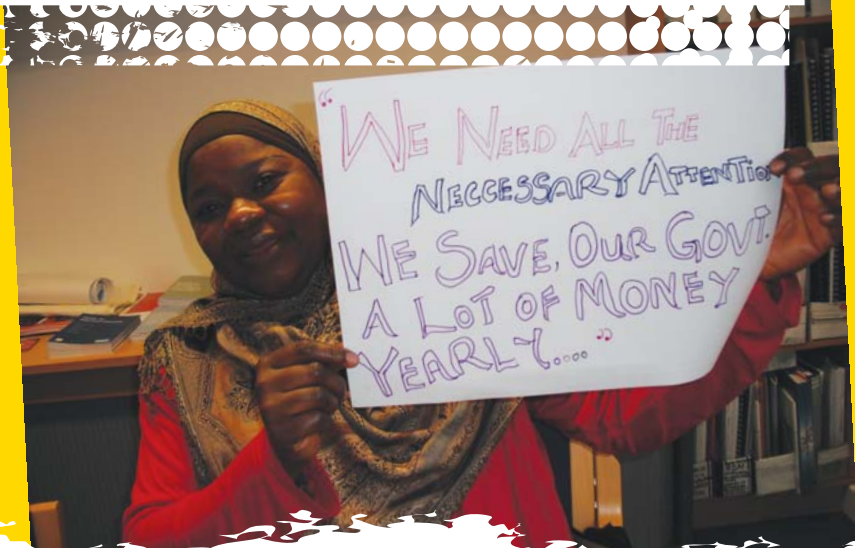 "WE NEED ALL THE
NECCESSARY ATTENTION
WE SAVE, OUR GOVT.
A LOT OF MONEY
YEARLY...."